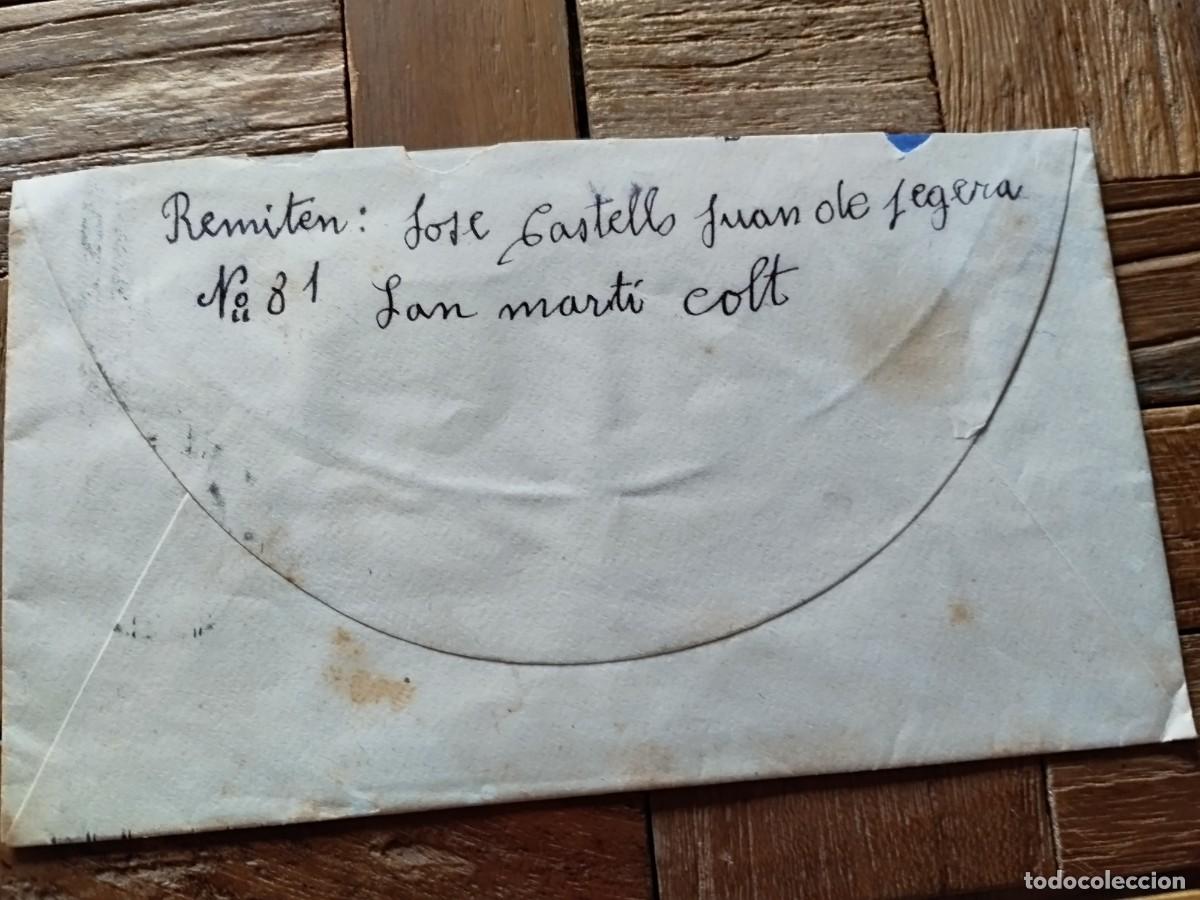 Remiten: Jose Castells Juan de segera
Nº 81 San martí colt
todocoleccion